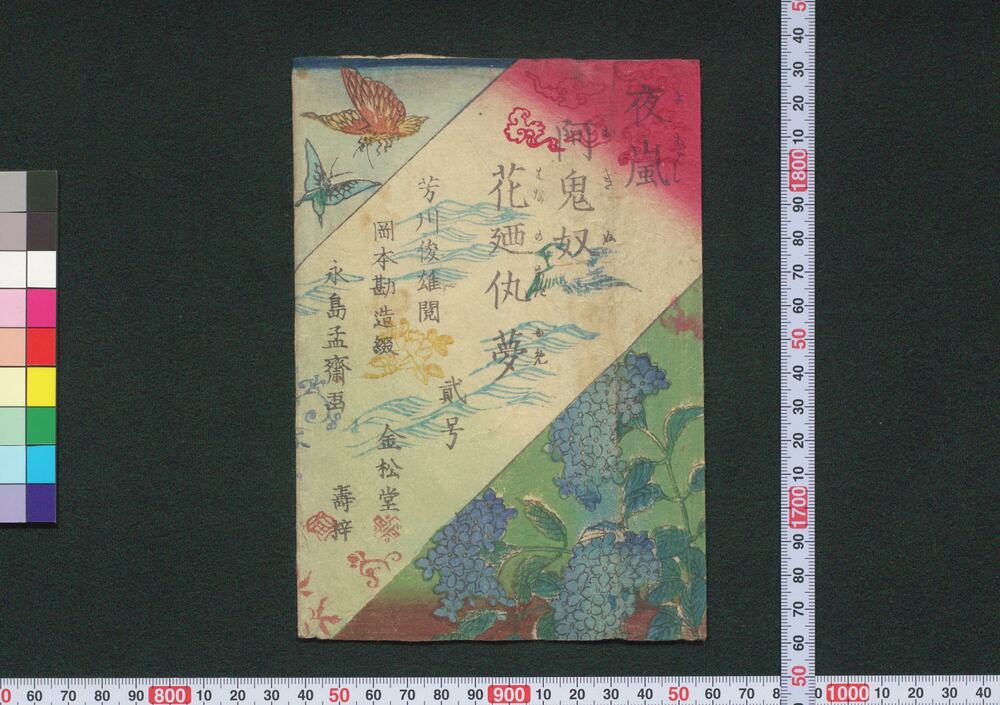 夜嵐
よあらし
阿鬼奴
おきぬ
花廼仇夢
はなのあだ
芳川俊雄閲
岡本勘造綴
永島孟齋画
貳号
金松堂
壽梓
50
40
30
20
10
1800
90
80
70
60
50
40
30
20
10
1700
90
80
70
60
50
0
60
70
80
90
800
10
20
30
40
50
60
70
80
90
900
10
20
30
40
50
60
70
8
0
1000
10
20
30
40